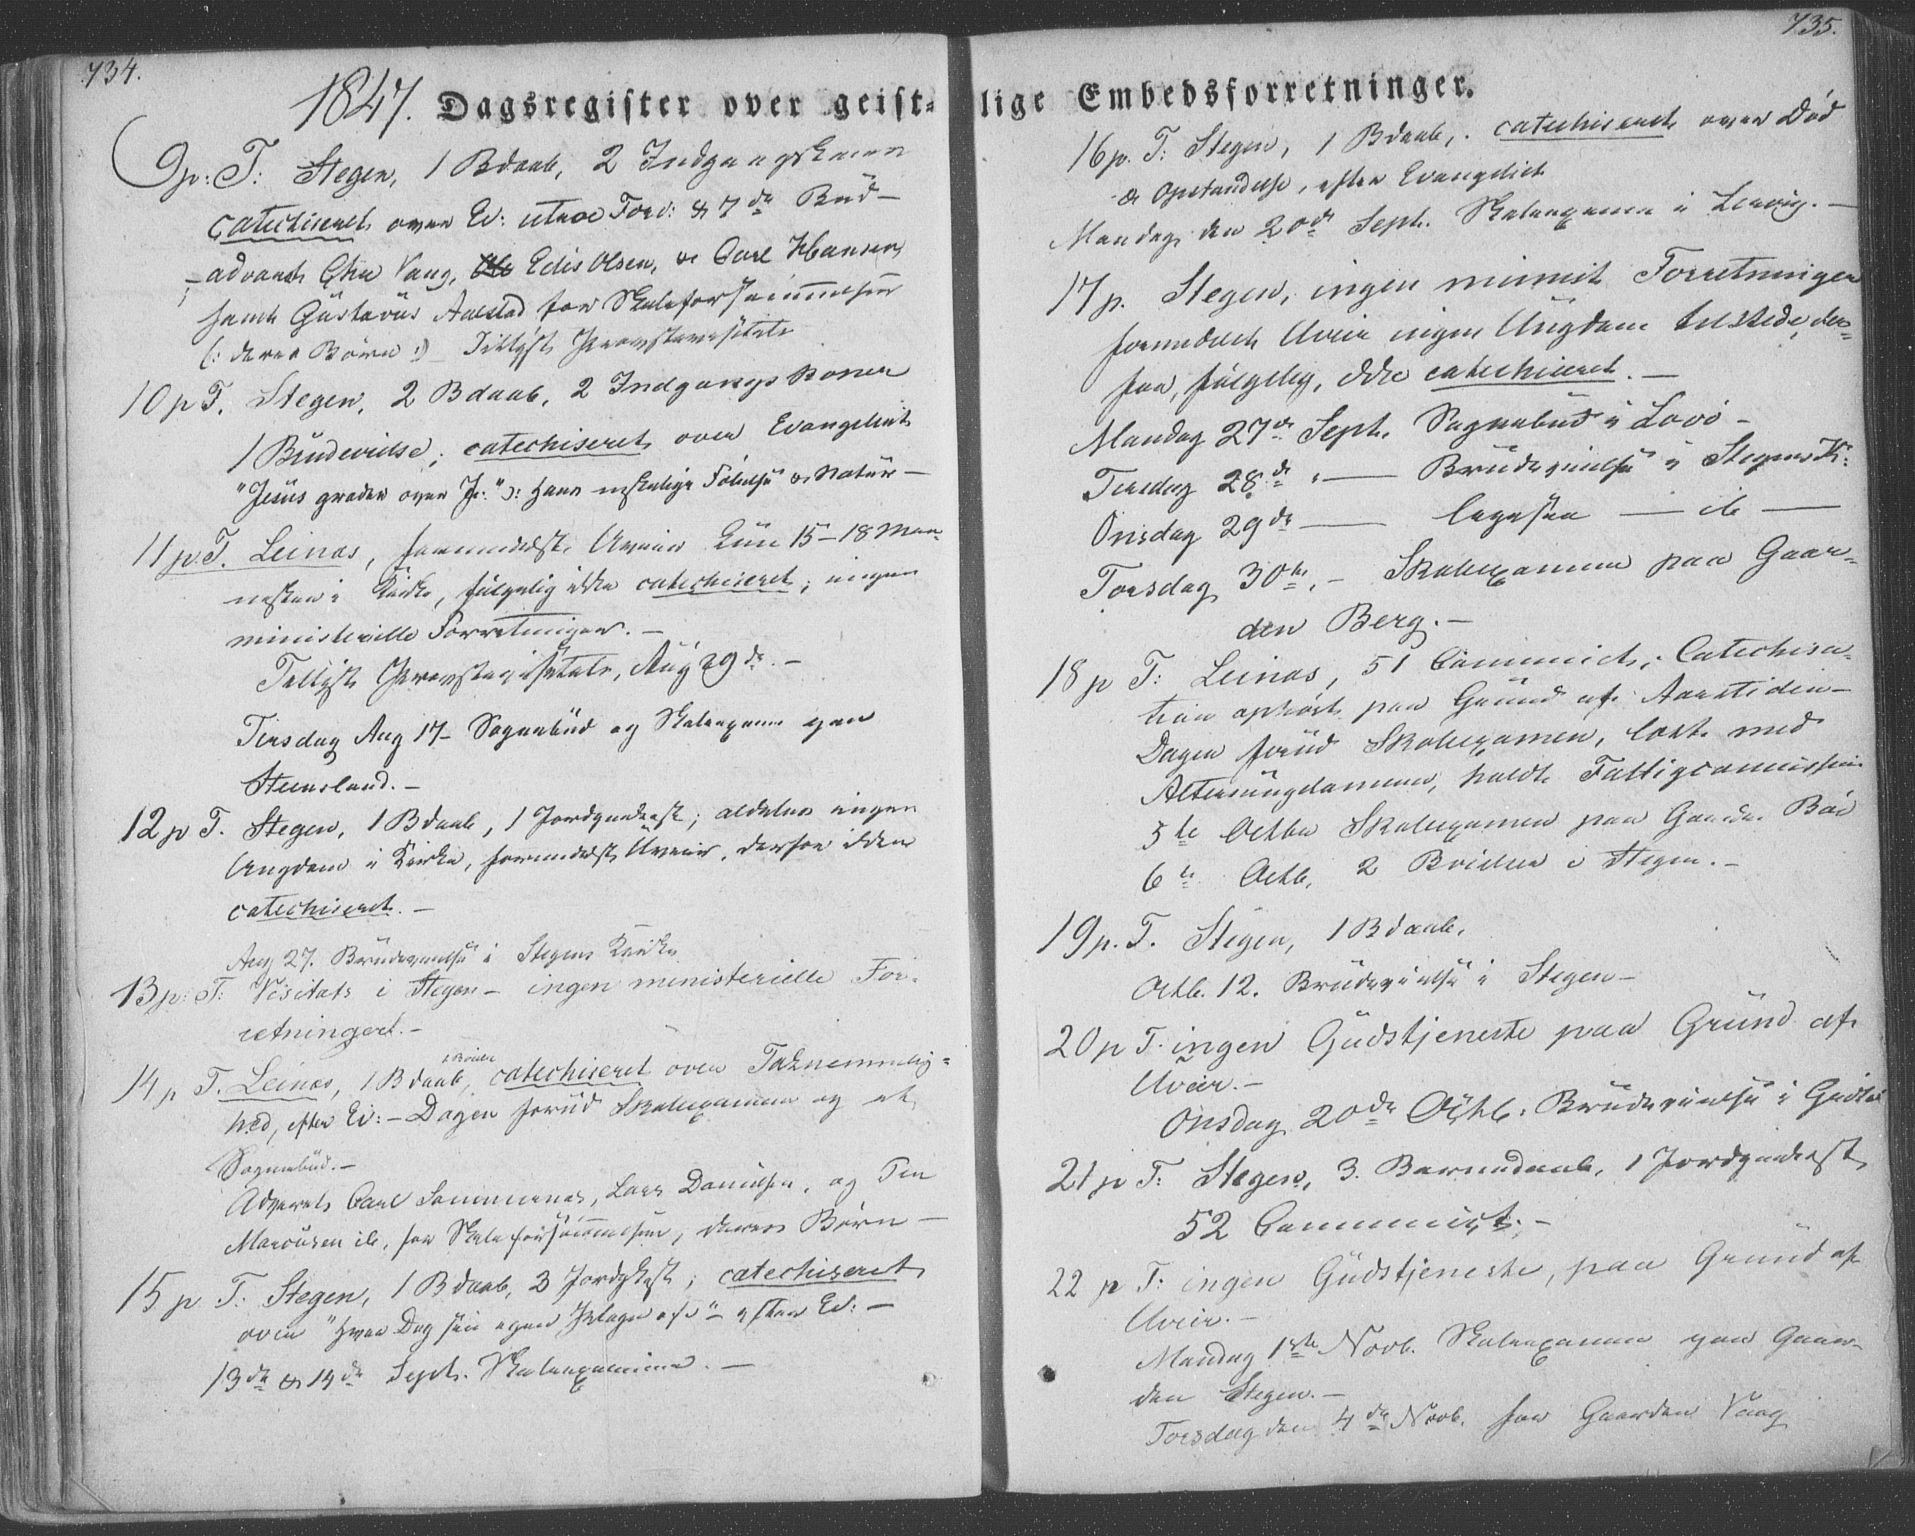 734.
1847. Dagsregister over geist-
9p: T: Stegen, 1 Bdaab, 2 Indgangskoner
catechiseret over Ev: 7de Bud —
advaret Chr Vaag, Edis Olsen, & Carl Hansen
samt Gustavus Aalstad for Skoleforsømmelser
(: deres Børn :) — Tillyst Provstevisitats
10 p T. Stegen, 2 Bdaab, 2 Indgangskoner
1 Brudevielse; catechiseret over Evangeliet
"Jesus græder over Jr:" ɔ: Hans Følelse & Natur —
11 p. T. Leines, formedelst Uveir kun 15-18 Men-
nesker i Kirke, følgelig ikke catechiseret; ingen
ministerielle Forretninger. —
Tillyst Provstevisitats, Aug 29de. —
Tirsdag Aug 17 — Sognebud og Skoleexamen paa
Steensland. —
12 p T. Stegen, 1 Bdaab, 1 Jordpaakast; aldeles ingen
Ungdom i Kirke, formedelst Uveir, derfor ikke
catechiseret. —
Aug 27. Brudevielse i Stegens Kirke
13 p: T: Visitats i Stegen — ingen ministerielle For-
retninger. —
14 p T. Leines, 1 Bdaab, catechiseret over Taknemmelig-
hed, efter Ev: — Dagen forud Skoleexamen og et
Sognebud. —
Advaret Carl Sommernes, Lars Danielsen, og Peu
Marcusen ib, for Skoleforsømmelser, deres Børn —
15 p T: Stegen, 1 Bdaab, 3 Jordpkast; catechiseret
over "hver Dag sin egen Plage osv" — efter Ev: —
13de & 14de Septb. Skoleexamina. —
735.
lige Embedsforretninger.
16 p. T: Stegen, 1 Bdaab, catechiseret over Død
& Opstandelse, efter Evangeliet
Mandag den 20de Septb. Skoleexamen i Leivig. —
17 p. Stegen, ingen minist Forretninger
formedelst Uveir ingen Ungdom tilstede, der-
for, følgelig, ikke catechiseret. —
Mandag 27de Septb. Sognebud i Lovø —
Tirsdag 28de — Brudevielse i Stegens K:
Onsdag 29de — ligesaa — ib —
Torsdag 30te, — Skoleexamen paa Gaar-
den Berg. —
18 p T: Leines, 51 Communict; Catechisa-
tion ophørt paa Grund af Aarstiden —
Dagen forud Skoleexamen, læst med
Altersungdommen, holdt Fattigcommission
5te Octbr Skoleexamen paa Gaarden Bøe
6te Octb. 2 Brvielser i Stegen. —
19 p. T. Stegen, 1 Bdaab.
Octb. 12. Brudevielse i Stegen —
20 p T. ingen Gudstjeneste paa Grund af
Uveir. —
Onsdag 20de Octb. Brudevielse i
21 p T: Stegen, 3 Barnedaab, 1 Jordpaakast,
52 Communict. —
22 p T: ingen Gudstjeneste, paa Grund af
Uveir. —
Mandag 1ste Novb. Skoleexamen paa Gaar-
den Stegen. —
Torsdag den 4de Novb. paa Gaarden Vaag